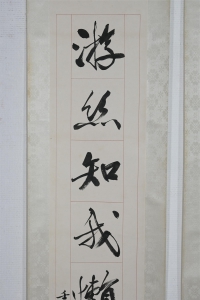 游丝知我懒